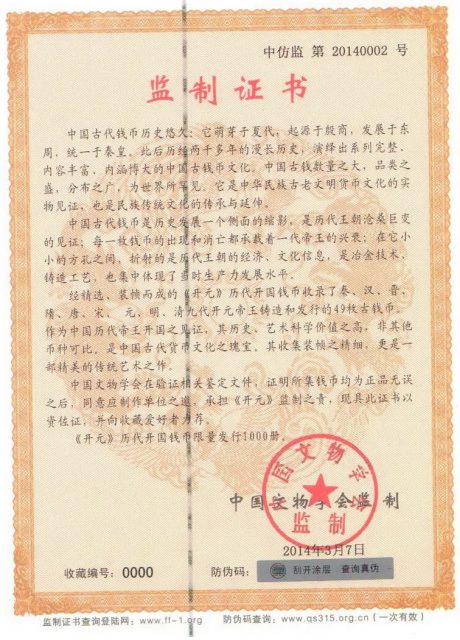 中仿监 第 20140002 号
监制证书
中国古代钱币历史悠久：它萌芽于夏代，起源于殷商，发展于东
周，统一于秦皇，此后历经两千多年的漫长历史，演绎出系列完整、
内容丰富、内涵博大的中国古钱币文化。中国古钱数量之大，品类之
盛，分布之广，为世界所罕见。它是中华民族古老文明货币文化的实
物见证，也是民族传统文化的传承与延伸。
中国古代钱币是历史发展一个侧面的缩影，是历代王朝沧桑巨变
的见证；每一枚钱币的出现和消亡都承载着一代帝王的兴衰；在它小
小的方孔之间，折射的是历代王朝的经济、文化信息，是冶金技术、
铸造工艺，也集中体现了当时生产力发展水平。
经精选、装帧而成的《开元》历代开国钱币收录了秦、汉、晋、
隋、唐、宋、元、明、清九代开元帝王铸造和发行的49枚古钱币。
作为中国历代帝王开国之见证，其历史、艺术科学价值之高，非其他
币种可比，是中国古代货币文化之瑰宝，其收集装帧之精细，更是一
部精美的传统艺术之作。
中国文物学会在验证相关鉴定文件，证明所集钱币均为正品无误
之后，同意应制作单位之邀，承担《开元》监制之责，现具此证书以
资佐证，并向收藏爱好者力荐。
《开元》历代开国钱币限量发行1000册。
中国文物学会
监制
中国文物学会监 制
2014年3月7日
收藏编号：0000 防伪码： 刮开涂层 查询真伪
监制证书查询登陆网：www.ff-1.org 防伪码查询：www.qs315.org.cn（一次有效）